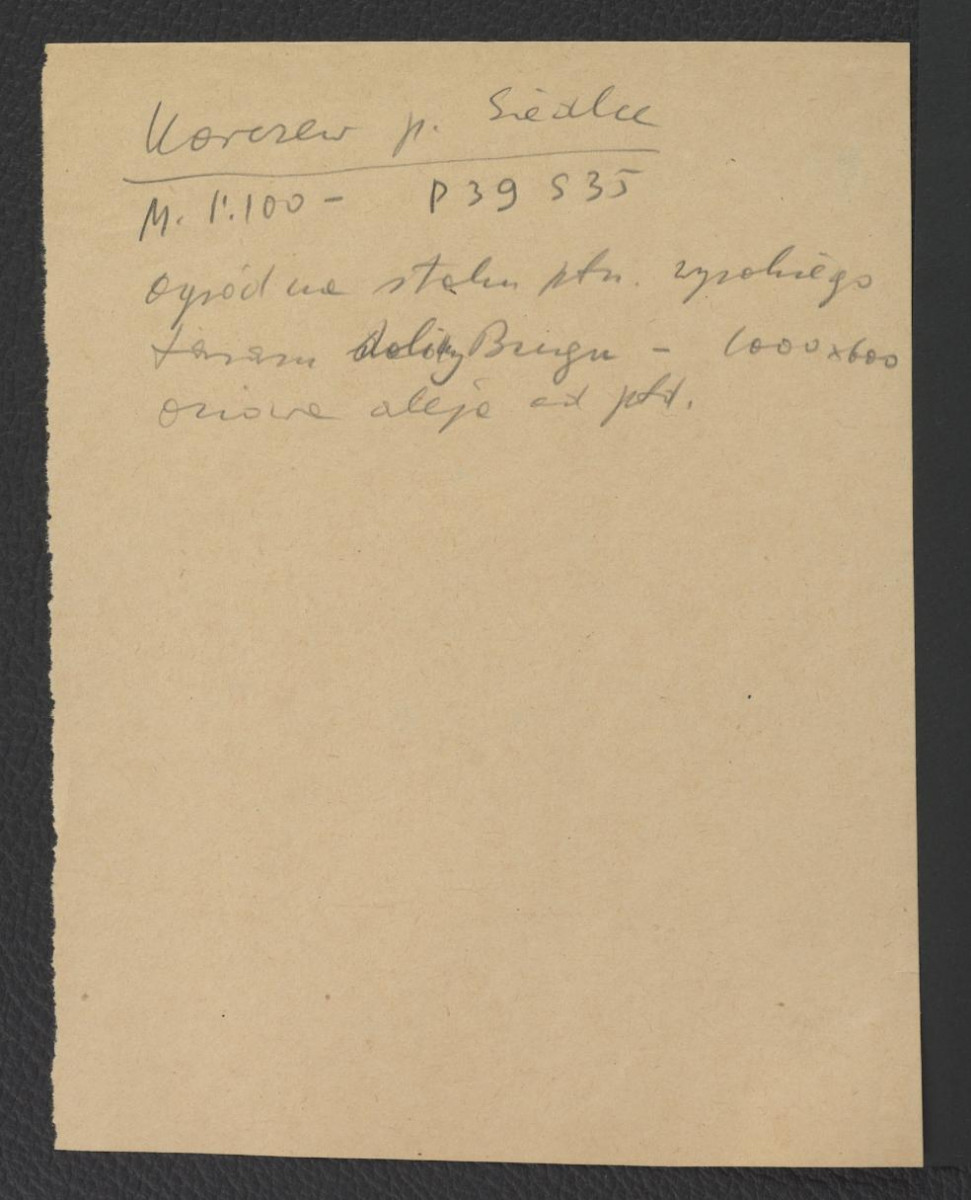 Korczew p. Siedlce
M. 1:100 - P 39 S 35
ogród na stoku płn. wysokiego
tarasu doliny Bugu - 1000x600
osiowa aleja od płd.